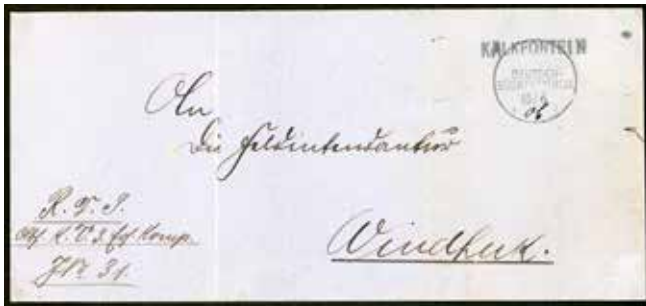 KALKFONTEIN
DEUTSCH-
SÜDWESTAFRIKA
An
Die Feldintendantur
Windhuk.
R. D. S.
Komp.
JNr 31.